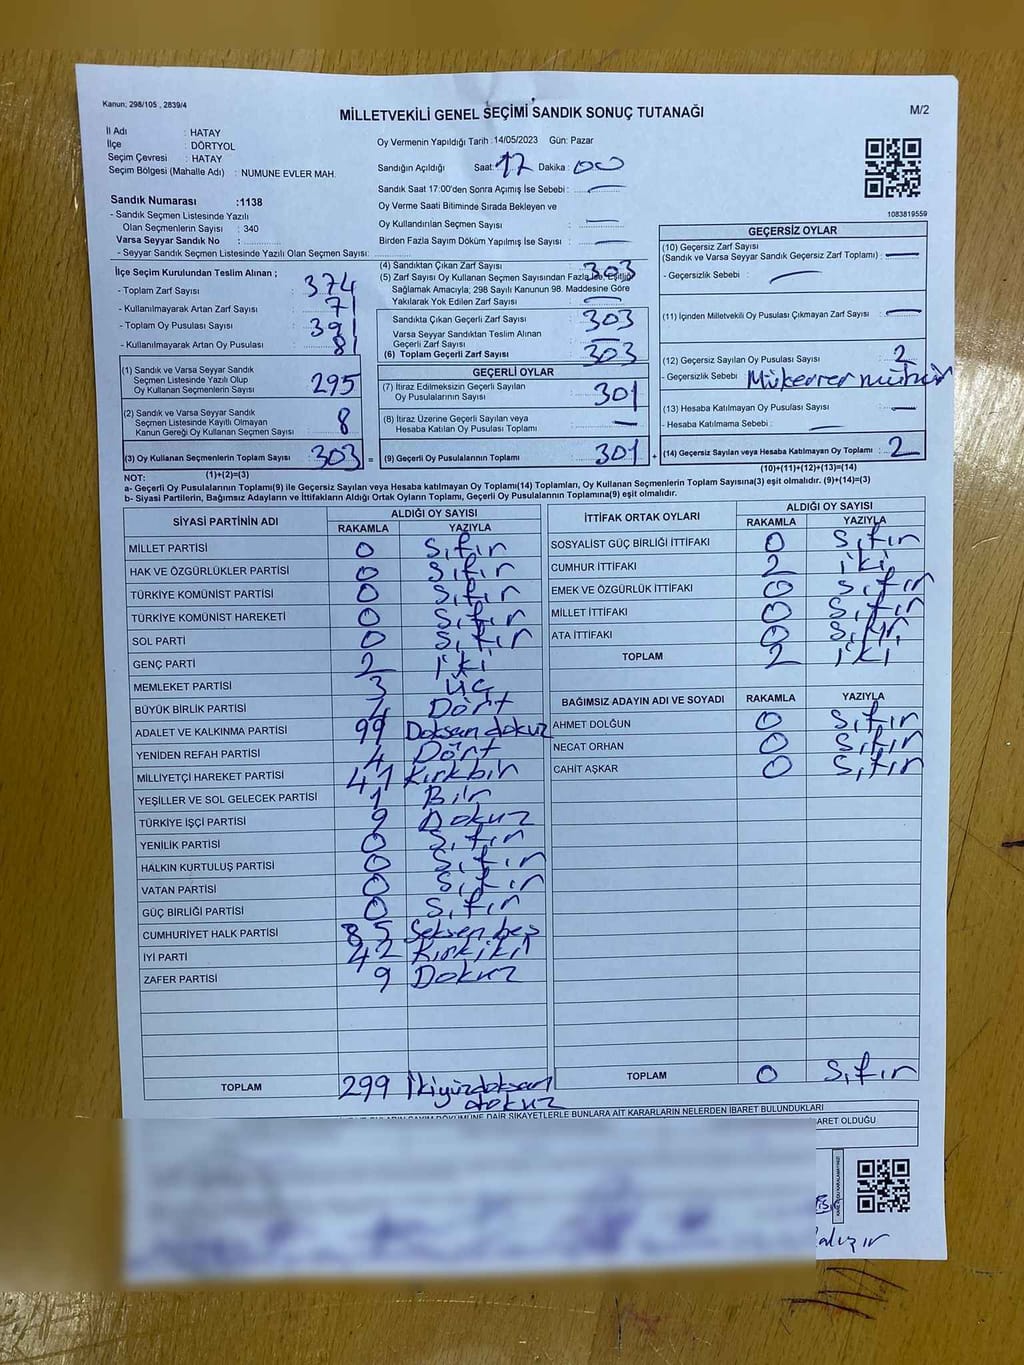 Kanun: 298/105 , 2839/4
MİLLETVEKİLİ GENEL SEÇİMİ SANDIK SONUÇ TUTANAĞI
M/2
İl Adı : HATAY
İlçe : DÖRTYOL
Seçim Çevresi : HATAY
Seçim Bölgesi (Mahalle Adı) : NUMUNE EVLER MAH.
Sandık Numarası :1138
- Sandık Seçmen Listesinde Yazılı
Olan Seçmenlerin Sayısı : 340
Varsa Seyyar Sandık No :
- Seyyar Sandık Seçmen Listesinde Yazılı Olan Seçmen Sayısı:
Oy Vermenin Yapıldığı Tarih : 14/05/2023 Gün: Pazar
Sandığın Açıldığı Saat: 17 Dakika : 00
Sandık Saat 17:00'den Sonra Açımış İse Sebebi : —
Oy Verme Saati Bitiminde Sırada Bekleyen ve
Oy Kullandırılan Seçmen Sayısı : —
Birden Fazla Sayım Döküm Yapılmış İse Sayısı : —
1083819559
İlçe Seçim Kurulundan Teslim Alınan ;
- Toplam Zarf Sayısı : 374
- Kullanılmayarak Artan Zarf Sayısı : 71
- Toplam Oy Pusulası Sayısı : 391
- Kullanılmayarak Artan Oy Pusulası : 81
(1) Sandık ve Varsa Seyyar Sandık
Seçmen Listesinde Yazılı Olup
Oy Kullanan Seçmenlerin Sayısı : 295
(2) Sandık ve Varsa Seyyar Sandık
Seçmen Listesinde Kayıtlı Olmayan
Kanun Gereği Oy Kullanan Seçmen Sayısı : 8
(3) Oy Kullanan Seçmenlerin Toplam Sayısı : 303 =
(1)+(2)=(3)
(4) Sandıktan Çıkan Zarf Sayısı : 303
(5) Zarf Sayısı Oy Kullanan Seçmen Sayısından Fazla İse, Eşitliği
Sağlamak Amacıyla; 298 Sayılı Kanunun 98. Maddesine Göre
Yakılarak Yok Edilen Zarf Sayısı : —
Sandıkta Çıkan Geçerli Zarf Sayısı : 303
Varsa Seyyar Sandıktan Teslim Alınan
Geçerli Zarf Sayısı : —
(6) Toplam Geçerli Zarf Sayısı : 303
GEÇERLİ OYLAR
(7) İtiraz Edilmeksizin Geçerli Sayılan
Oy Pusulalarının Sayısı : 301
(8) İtiraz Üzerine Geçerli Sayılan veya
Hesaba Katılan Oy Pusulası Toplamı : —
(9) Geçerli Oy Pusulalarının Toplamı : 301 +
GEÇERSİZ OYLAR
(10) Geçersiz Zarf Sayısı
(Sandık ve Varsa Seyyar Sandık Geçersiz Zarf Toplamı) : —
- Geçersizlik Sebebi : —
(11) İçinden Milletvekili Oy Pusulası Çıkmayan Zarf Sayısı : —
(12) Geçersiz Sayılan Oy Pusulası Sayısı : 2
- Geçersizlik Sebebi : Mükerrer mühür
(13) Hesaba Katılmayan Oy Pusulası Sayısı : —
- Hesaba Katılmama Sebebi : —
(14) Geçersiz Sayılan veya Hesaba Katılmayan Oy Toplamı : 2
(10)+(11)+(12)+(13)=(14)
NOT:
a- Geçerli Oy Pusulalarının Toplamı(9) ile Geçersiz Sayılan veya Hesaba katılmayan Oy Toplamı(14) Toplamları, Oy Kullanan Seçmenlerin Toplam Sayısına(3) eşit olmalıdır. (9)+(14)=(3)
b- Siyasi Partilerin, Bağımsız Adayların ve İttifakların Aldığı Ortak Oyların Toplamı, Geçerli Oy Pusulalarının Toplamına(9) eşit olmalıdır.
SİYASİ PARTİNİN ADI ALDIĞI OY SAYISI
RAKAMLA YAZIYLA
MİLLET PARTİSİ 0 Sıfır
HAK VE ÖZGÜRLÜKLER PARTİSİ 0 Sıfır
TÜRKİYE KOMÜNİST PARTİSİ 0 Sıfır
TÜRKİYE KOMÜNİST HAREKETİ 0 Sıfır
SOL PARTİ 0 Sıfır
GENÇ PARTİ 2 iki
MEMLEKET PARTİSİ 3 üç
BÜYÜK BİRLİK PARTİSİ 4 Dört
ADALET VE KALKINMA PARTİSİ 99 Doksan dokuz
YENİDEN REFAH PARTİSİ 4 Dört
MİLLİYETÇİ HAREKET PARTİSİ 41 Kırkbir
YEŞİLLER VE SOL GELECEK PARTİSİ 1 Bir
TÜRKİYE İŞÇİ PARTİSİ 9 Dokuz
YENİLİK PARTİSİ 0 Sıfır
HALKIN KURTULUŞ PARTİSİ 0 Sıfır
VATAN PARTİSİ 0 Sıfır
GÜÇ BİRLİĞİ PARTİSİ 0 Sıfır
CUMHURİYET HALK PARTİSİ 85 Seksen beş
İYİ PARTİ 42 Kırkiki
ZAFER PARTİSİ 9 Dokuz
TOPLAM 299 İkiyüzdoksan
dokuz
İTTİFAK ORTAK OYLARI ALDIĞI OY SAYISI
RAKAMLA YAZIYLA
SOSYALİST GÜÇ BİRLİĞİ İTTİFAKI 0 Sıfır
CUMHUR İTTİFAKI 2 iki
EMEK VE ÖZGÜRLÜK İTTİFAKI 0 Sıfır
MİLLET İTTİFAKI 0 Sıfır
ATA İTTİFAKI 0 Sıfır
TOPLAM 2 iki
BAĞIMSIZ ADAYIN ADI VE SOYADI RAKAMLA YAZIYLA
AHMET DOLĞUN 0 Sıfır
NECAT ORHAN 0 Sıfır
CAHİT AŞKAR 0 Sıfır
TOPLAM 0 Sıfır
SAYIM DÖKÜMÜNE DAİR ŞİKAYETLERLE BUNLARA AİT KARARLARIN NELERDEN İBARET BULUNDUKLARI
İBARET OLDUĞU